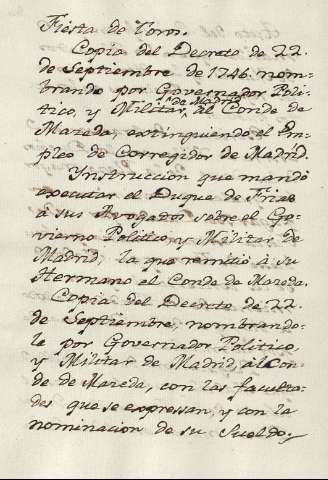 Fiesta de Toros.
Copia del Decreto de 22.
de Septiembre de 1746. nom-
brando por Governador Poli-
tico, y Militar de Madrid al Conde de
Mazeda, extinguiendo el Em-
pleo de Corregidor de Madrid.
Instruccion que mandó
executar el Duque de Frias
á sus Avogados sobre el Go-
vierno Politico, y Militar de
Madrid, la que remitió à su
Hermano el Conde de Mazeda.
Copia del Decreto de 22.
de Septiembre, nombrando-
le por Governador Politico,
y Militar de Madrid, àl Con-
de de Mazeda, con las faculta-
des que se expressan, y con la
nominacion de su Sueldo.